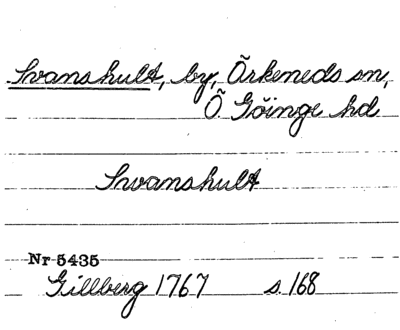 Svanshult, by, Örkeneds sn,
Ö Göinge hd
Swanshult
Nr 5435
Gillberg 1767 s. 168